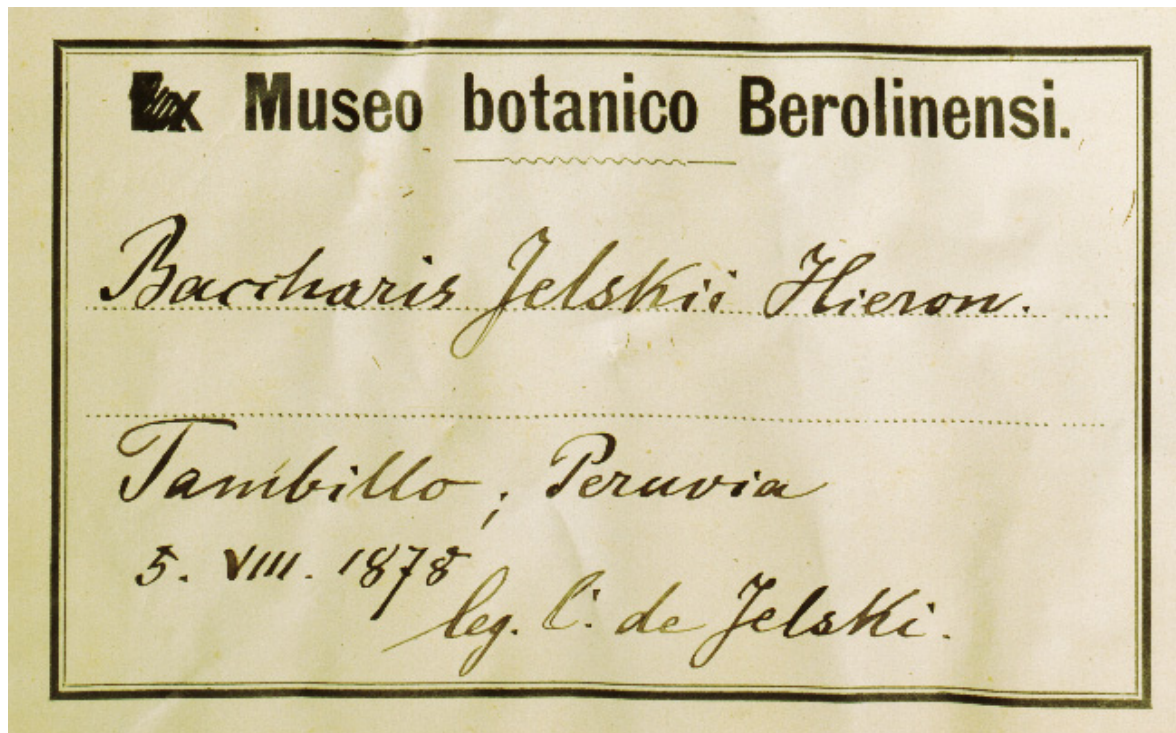 Ex Museo botanico Berolinensi.
Baccharis Jelskii Hieron.
Tambillo, Peruvia
5. VIII. 1878
leg. C. de Jelski.